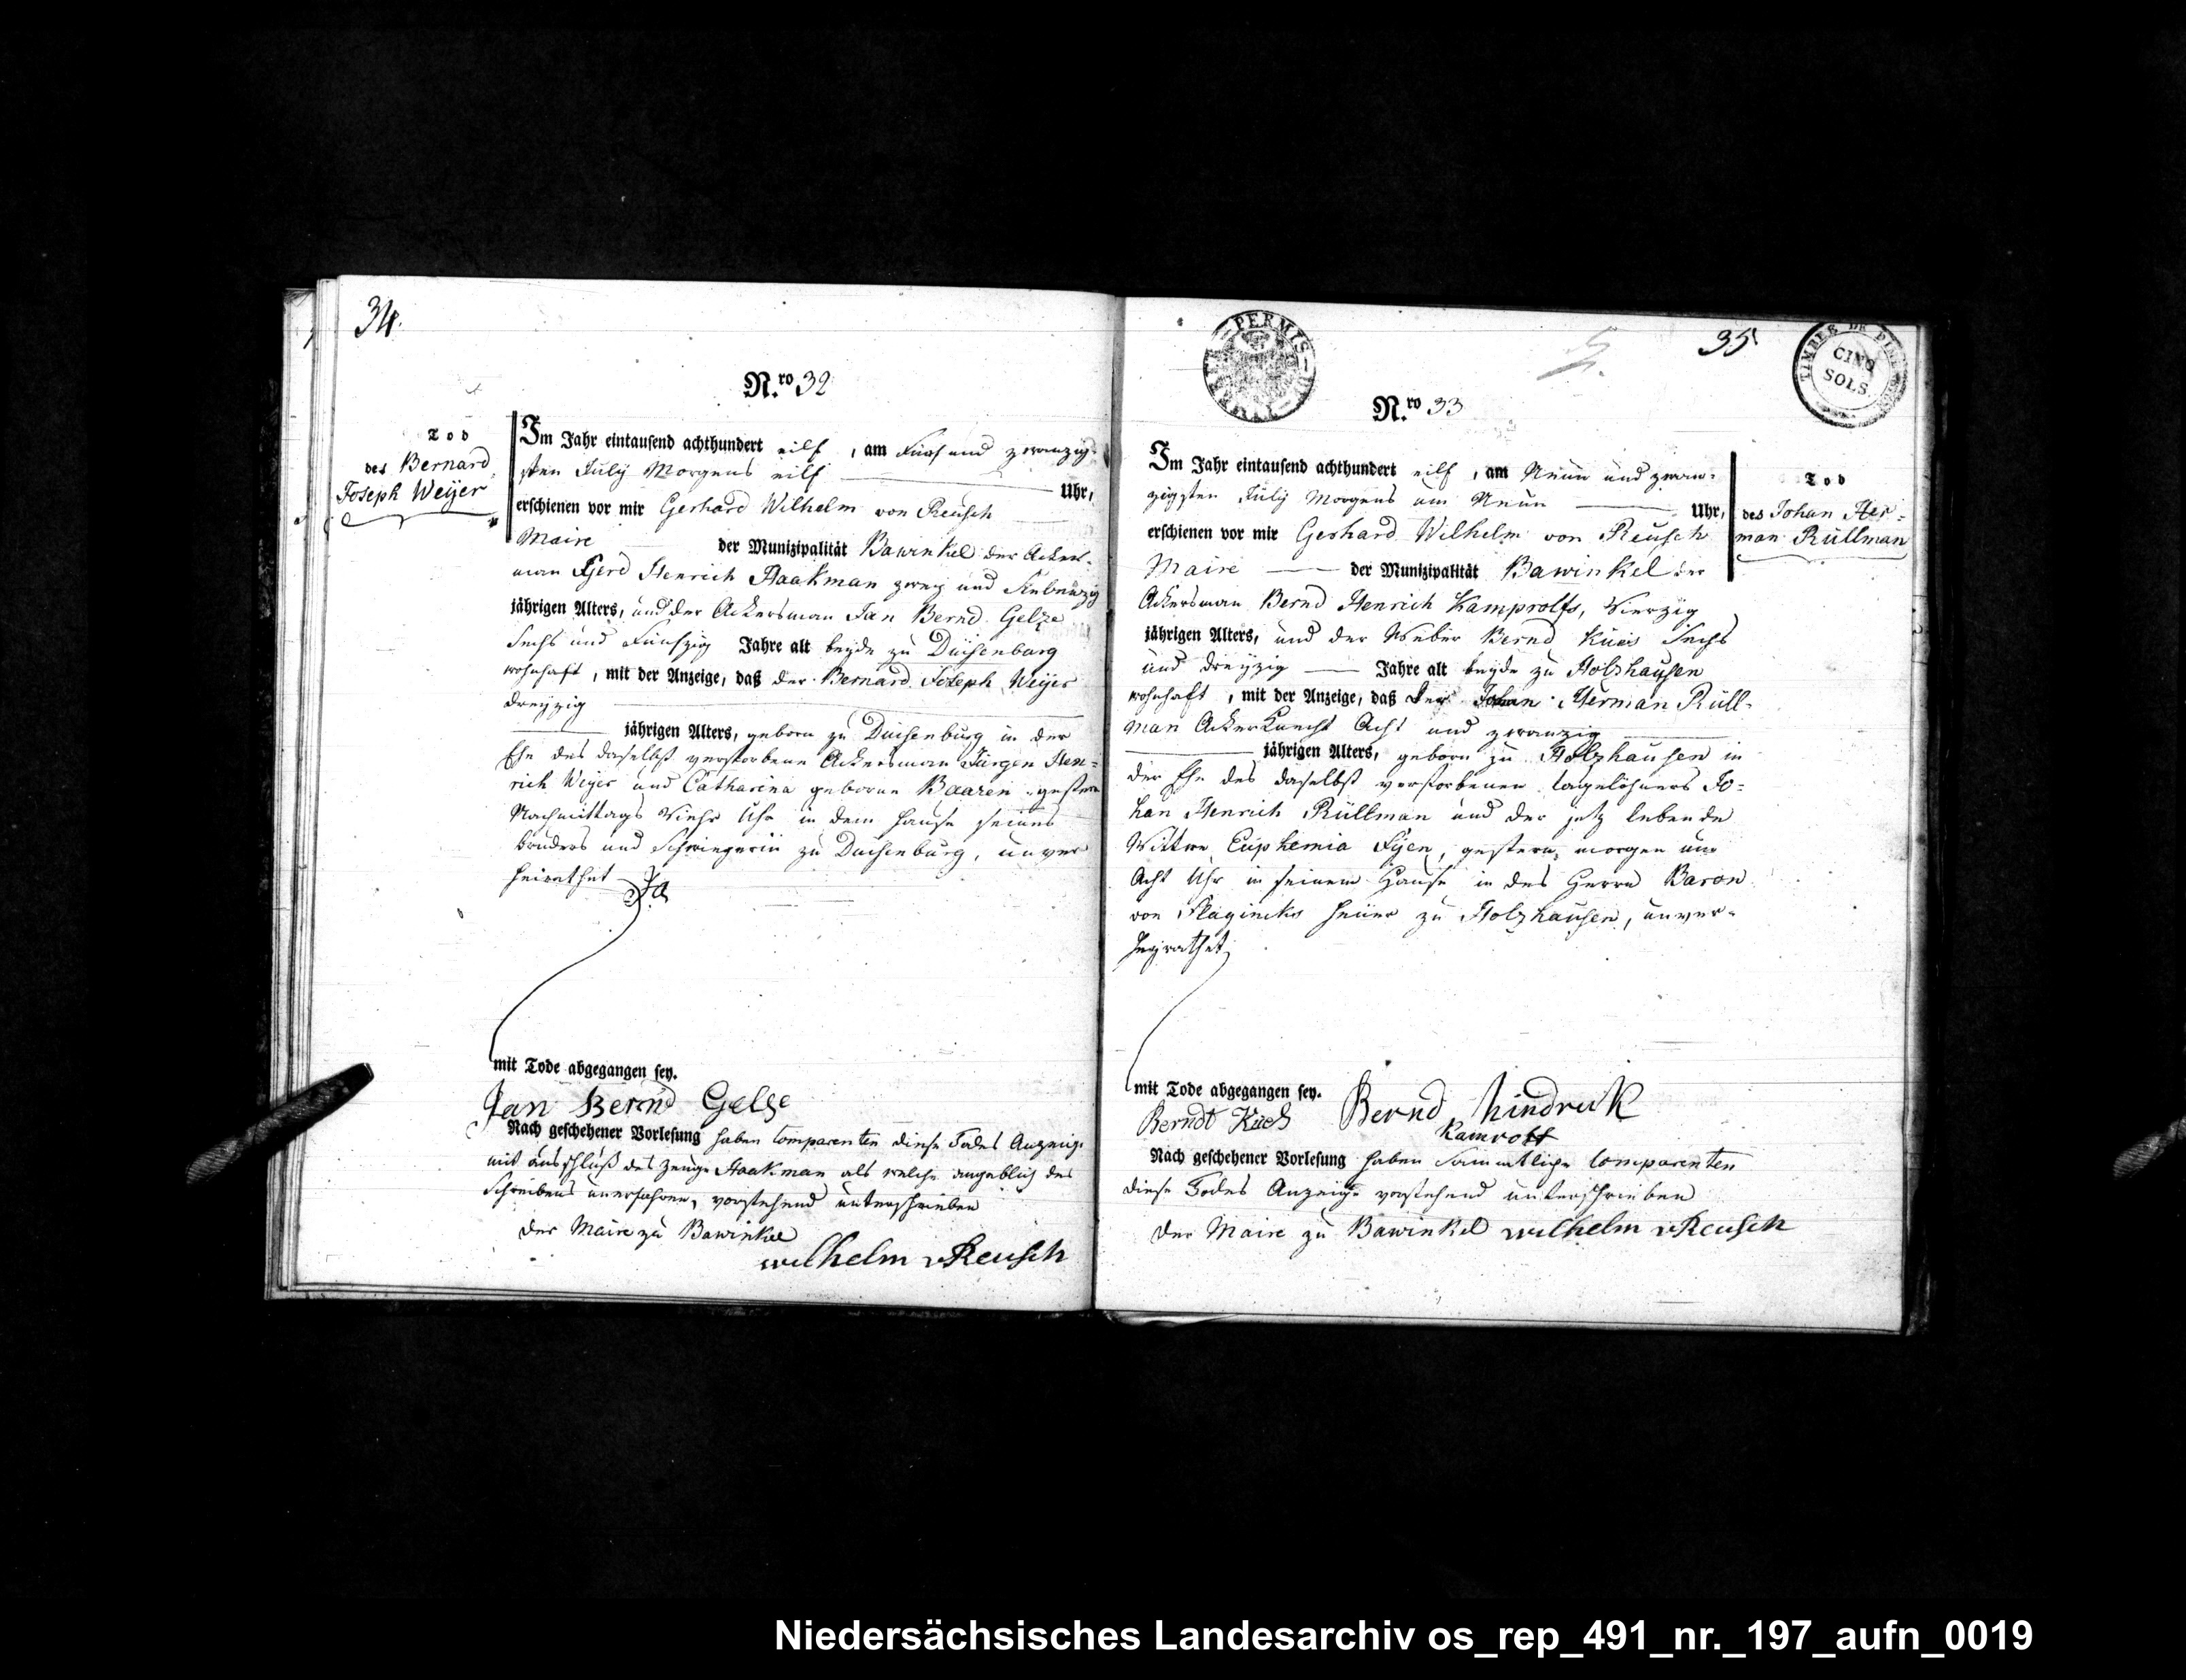 34.
N.ro 32
Tod
des Bernard
Joseph Weijer
Im Jahr eintausend achthundert eilf, am Fünf und zwanzig-
sten Julÿ Morgens eilf Uhr,
erschienen vor mir Gerhard Wilhelm von Reusch
Maire der Munizipalität Bawinkel der Ackers-
man Gerd Henrich Haakman zweÿ und Siebenzig
jährigen Alters, und der Ackersman Jan Bernd Gelze
Sechs und Funfzig Jahre alt beyde zu Duisenburg
wohnhaft, mit der Anzeige, daß der Bernard Joseph Weijer
dreÿzig
jährigen Alters, geborn zu Duisenburg in der
Ehe des daselbst verstorbene Ackersman Jürgen Hen-
rich Weijer und Catharina geborne Baaren gestern
Nachmittags Viehr Uhr in dem Hause seines
bruders und Schwiegerin zu Duisenburg, unver
heirathet
mit Tode abgegangen sey.
Jan Bernd Gelse
Nach geschehener Vorlesung haben Comparenten diese Todes Anzeige
mit ausschluß des Zeuge Haakman als welche angeblich des
Schreibens unerfahren, vorstehend unterschrieben
Der Maire zu Bawinkel
Wilhelm vReusch
PERMIS
35
TIMBRE DE
CINQ
SOLS
N.ro 33
Tod
des Johan Her-
man Rüllman
Im Jahr eintausend achthundert eilf, am Neun und zwan-
zigsten Julÿ Morgens um Neun Uhr,
erschienen vor mir Gerhard Wilhelm von Reusch
Maire der Munizipalität Bawinkel der
Ackersman Bernd Henrich Kamprolfs, Vierzig
jährigen Alters, und der Weber Bernd Küis Sechs
und dreÿzig Jahre alt beyde zu Holzhausen
wohnhaft, mit der Anzeige, daß der Johan Herman Rüll-
man Ackerknecht Acht und zwanzig
jährigen Alters, geborn zu Holzhausen in
der Ehe des daselbst verstorbenen tagelöhners Jo-
han Henrich Rüllman und der jetz lebende
Wittwe Euphemia Fijen, gestern morgen um
Acht Uhr in seinem Hause in des Herrn Baron
von Heüer zu Holzhausen, unver-
heyrathet
mit Tode abgegangen sey.
Berndt Kües Bernd hindruk
Kamrolf
Nach geschehener Vorlesung haben Sammtliche Comparenten
diese Todes Anzeige vorstehend unterschrieben
Der Maire zu Bawinkel Wilhelm vReusch
Niedersächsisches Landesarchiv os_rep_491_nr._197_aufn_0019